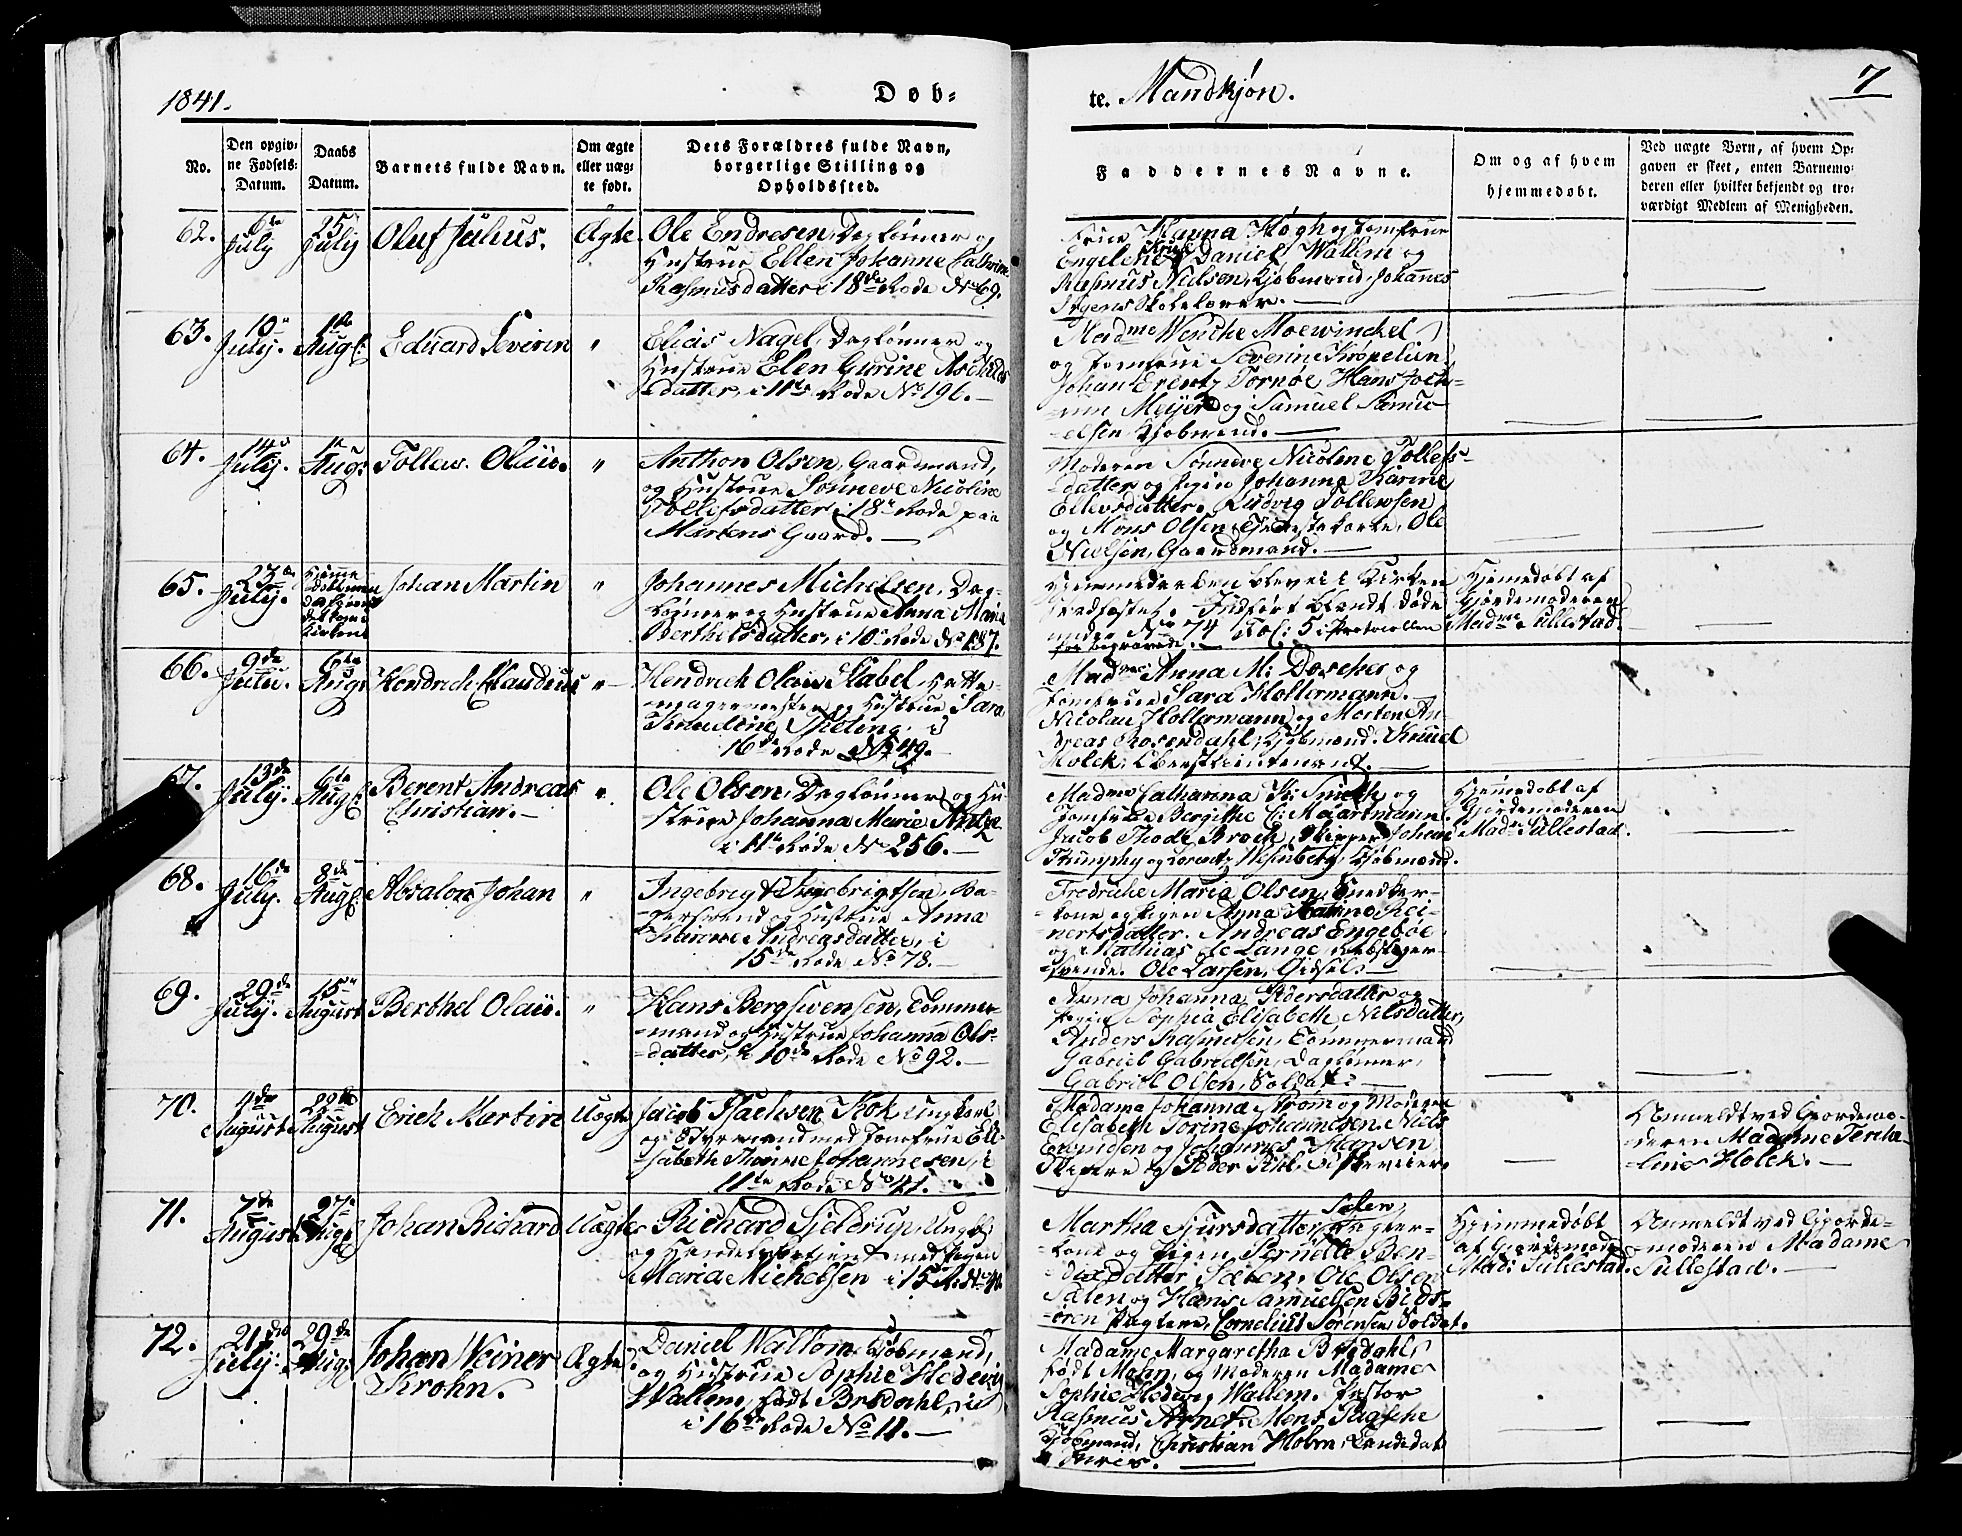 1841.
Døb-
te. Mandkjøn.
7
No.
Den opgiv-
ne Fødsels-
Datum.
Daabs
Datum.
Barnets fulde Navn.
Om ægte
eller uæg-
te født.
Dets Forældres fulde Navn,
borgerlige Stilling og
Opholdssted.
Faddernes Navne.
Om og af hvem
hjemmedøbt.
Ved uægte Børn, af hvem Op-
gaven er skeet, enten Barnemo-
deren eller hvilket bekjendt og tro-
værdigt Medlem af Menigheden.
62.
6te
July
25
July
Oluf Julius.
Ægte
Ole Endresen, Daglønner og
Hustrue Ellen Johanne Cathrine
Rasmusdatter i 18de Rode No 69.
Frue Hanna Høgh og Jomfrue
Engelche Daniel Wallem og
Rasmus Nielsen, Kjøbmænd, Johannes
Skolelærer.
63.
10
July.
1ste
Augs:
Eduard Severin
"
Elias Nagel, Daglønner og
Hustrue Elen Gurine Aschilds
datter, i 11te Rode No 196.
Madme Wenche Moewinchel
og Jomfrue Severine Krøpelien
Johan Erentz Tornøe, Hans Joch-
um Meyer og Samuel Samu-
elsen Kjøbmænd.
64.
14
July.
1
Augs
Tollew Olaus.
"
Anthon Olsen, Gaardmand,
og Hustrue Sønneve Nicoline
Tollefsdatter i 18 Rode paa
Mørtens Gaard.
Moderen Sønneve Nicoline Tollefs-
datter og Pigen Johanna Karine
Ellevsdatter. Ludvig Tollewsen
og Mons Olsen Tjenestekarle, Ole
Nielsen, Gaardmand.
65.
23
July.
Hjemme
døbt
Kirken
Johan Martin
"
Johannes Michelsen, Dag-
lønner og Hustrue Anna Maria
Berthelsdatter, i 10 Rode No 187.
Hjemmedaaben blev ei i Kirken
stadfæstet. Indført blandt døde
under No 74 Fol: 5 i Protocollen
for begravede.
Hjemedøbt af
Gjordemoderen
Madme Sillestad.
66.
9de
July.
6te
Augs
Hendrich Claudius
"
Hendrich Olsen Stabel, Hatte-
magermester og Hustrue Sara
Theting, i
16de Rode No 49.
Madme Anna M: Døscher og
Jomfrue Sara Holtermann.
Nicolai Holtermann og Morten An-
dreas Rosendahl, Kjøbmænd. Knud
Holck,
67.
13de
July.
6te
Augs:
Berent Andreas
Christian.
"
Ole Olsen, Daglønner og Hu-
strue Johanna Marie
i 11te Rode No 256.
Madme Catharina K: Smith og
Jomfrue Bergithe C:
Jacob Thode Broch, Skipper Johan
Trumphy og Lorentz Wesenberg, Kjøbmænd.
Hjemedøbt af
Gjordemoderen
Mad: Sillestad.
68.
16de
July.
8de
Augs
Absalon Johan
"
Ingebrigt Ingebrigtsen, Ba-
gersvend og Hustrue Anna
Karine Andreasdatter, i
15de Rode No 78.
Fredriche Maria Olsen, Snedker-
kone og Pigen Anna Rei-
nertsdatter. Andreas Engebøe
og Mathias de Lange, Rebslager-
svende. Ole Larsen, Gidsel.
69.
29de
July.
15de
August
Berthel Olaus.
"
Hans Berg Swensen, Tømmer-
mand og Hustrue Johanna Ols-
datter, i 10de Rode No 92.
Anna Johanna Pedersdatter og
Pigen Sophia Elisabeth Nilsdatter,
Anders Rasmussen, Tømmermand
Gabriel Gabrielsen, Daglønner,
Gabriel Olsen, Soldat.
70.
4de
August
29de
August
Erich Martin
Uægte
Jacob Kok, Ungkarl
og Styrmand med Jomfrue Eli-
sabeth Thorine Johannesen, i
11te Rode No 41.
Madame Johanna Strøm og Moderen
Elisabeth Torine Johannesen. Niels
og Johannes Hansen
Skippere og Peder
Anmeldt ved Gjordemo-
deren Madame
Holck.
71.
7de
August
27de
Augs
Johan Richard
Uægte
Richard Sjeldrup, Ungkarl
og Handelsbetjent med Pigen
Maria Michelsen i 15 R: No 40
Martha Sjursdatter Sælen,
kone og Pigen, Pernelle Ben-
dixdatter Sælen. Ole Olsen
Sælen og Hans Samuelsen
Cornelius Sørensen Soldat.
Hjemmedøbt
af Gjordemod:
Mad: Sillestad.
Anmeldt ved Gjorde-
moderen Madame
Sillestad.
72.
21de
July.
29de
Augs
Johan Weiner
Krohn.
Ægte
Daniel Wallem, Kjøbmand,
og Hustrue Sophie Hedevig
Wallem, født Bredahl,
i 16de Rode No 11.
Madame Margaretha Bredahl,
født Mohn, og Moderen Madame
Sophie Hedevig Wallem. Pastor
Rasmus Mons
Kjøbmand, Christian Holm, Candidat
Juris.